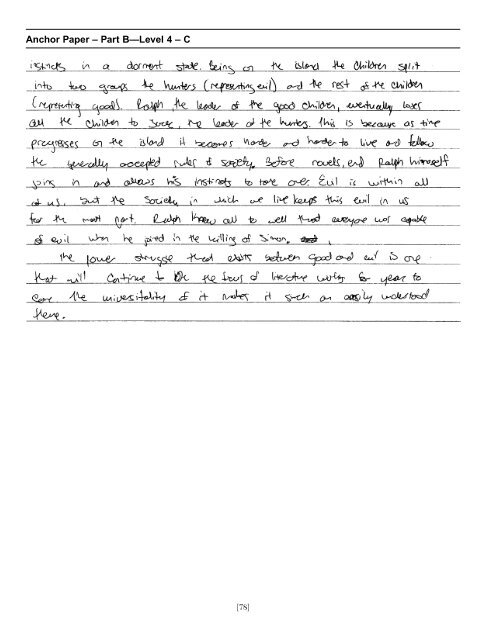 Anchor Paper – Part B—Level 4 – C
instincts in a dorment state. Being on the island the children split
into two groups the hunters (representing evil) and the rest of the children
(representing good). Ralph, the leader of the good children, eventually loses
all the children to Jack, the leader of the hunters. This is because as time
progresses on the island it becomes harder and harder to live and follow
the generally accepted rules of society. Before novels, end Ralph himself
joins in and allows his instincts to take over Evil is within all
of us, but the Society in which we live keeps this evil in us
for the most part. Ralph knew all to well that everyone was capable
of evil when he joined in the killing of Simon.
The power struggle that exists between good and evil is one
that will Continue to be the focus of literature works for year to
come. The universitality of it makes it such an easily understood
theme.
[78]